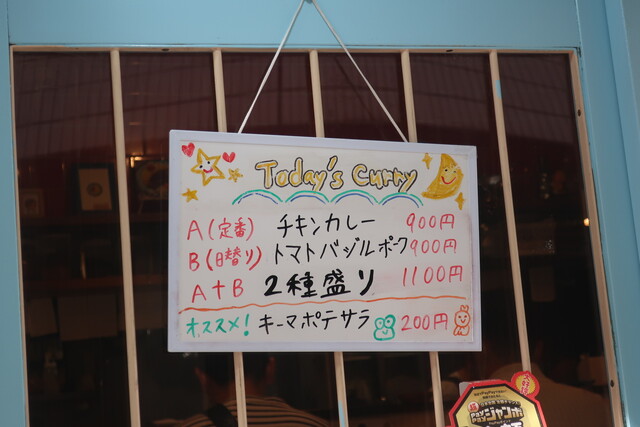 Today's Curry
A(定番) チキンカレー 900円
B(日替り) トマトバジルポーク 900円
A+B 2種盛り 1100円
オススメ! キーマポテサラ 200円
PayPay
ジャンボ